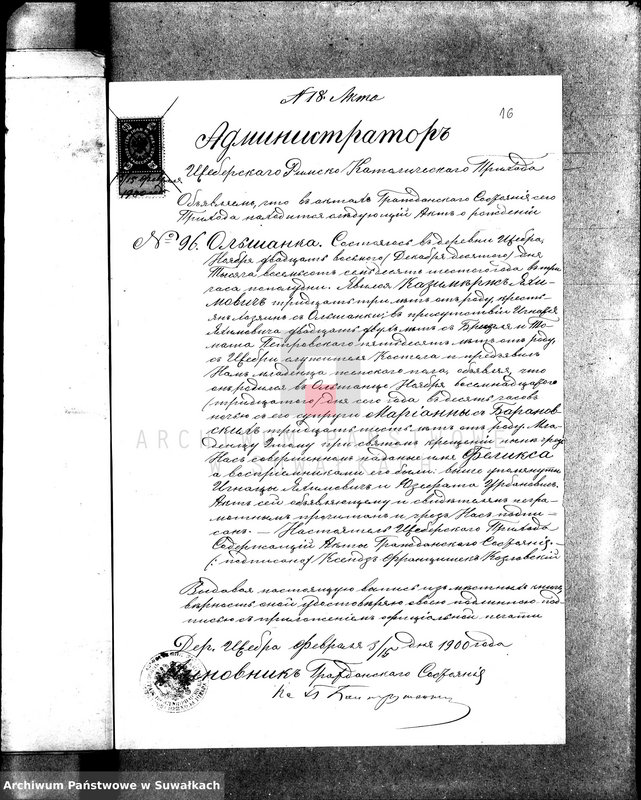 N 18. Акта
16
Администраторъ
Щеберскаго Римско Католическаго Прихода
Объявляемъ, что въ актахъ Гражданскаго Состоянія сего
Прихода находится слѣдующій Актъ о рожденіи
15 февраля
1900
№ 96. Ольшанка. Состоялось въ деревни Щебра,
Ноября двадцать восьмого / Декабря десятого / дня
Тысяча восемьсотъ семьдесятъ шестого года въ три
часа пополудни. Явился Казимиржъ Яхи-
мовичъ тридцать три лѣтъ отъ роду, кресть-
янъ хозяинъ съ Ольшанки; въ присутствіи Игнатія
Яхимовича двадцать двухъ лѣтъ съ и То-
маша Петровскаго пятьдесятъ лѣтъ отъ роду,
съ Щебры служителя Костела и предъявилъ
Намъ младенца женскаго пола, объявляя, что
онъ родился въ Ольшанце Ноября восемнадцатаго
(тридцатого) дня сего года въ десять часовъ
ночью съ его супруги Маріанны съ Баранов-
скихъ тридцать шесть лѣтъ отъ роду. Мла-
денцу этому при святомъ крещеніи черезъ
Насъ совершенномъ дано имя Феликса
а воспріемниками его были: выше упомянутый
Игнацы Яхимовичъ и Юзефата Урбановичъ.
Актъ сей объявляющему и свидѣтелямъ негра-
мотнымъ прочитанъ и чрезъ Насъ подпи-
санъ. — Настоятель Щеберскаго Прихода
Содержащій Акты Гражданскаго Состоянія. —
(: подписано) Ксендзъ Францишекъ Козловскій
Выдавая настоящую выпись изъ мѣстныхъ книгъ
вѣрность оной удостовѣряю своею подлинною под-
писью съ приложеніемъ официальной печати
Дер. Щебра Февраля 3/15 дня 1900 года
Чиновникъ Гражданскаго Состоянія
Кс
ARCHIWUM PAŃSTWOWE
W SUWAŁKACH
Archiwum Państwowe w Suwałkach